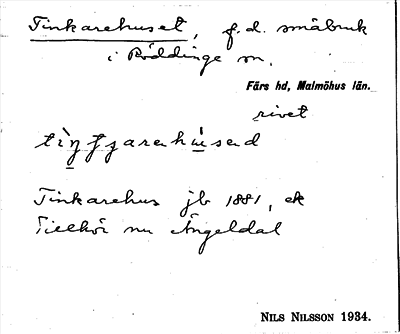 Tinkarehuset, f.d. småbruk
i Röddinge sn.
Färs hd, Malmöhus län.
rivet
Tinkarehus jb 1881, ek
Tillhör nu Ängeldal
NILS NILSSON 1934.